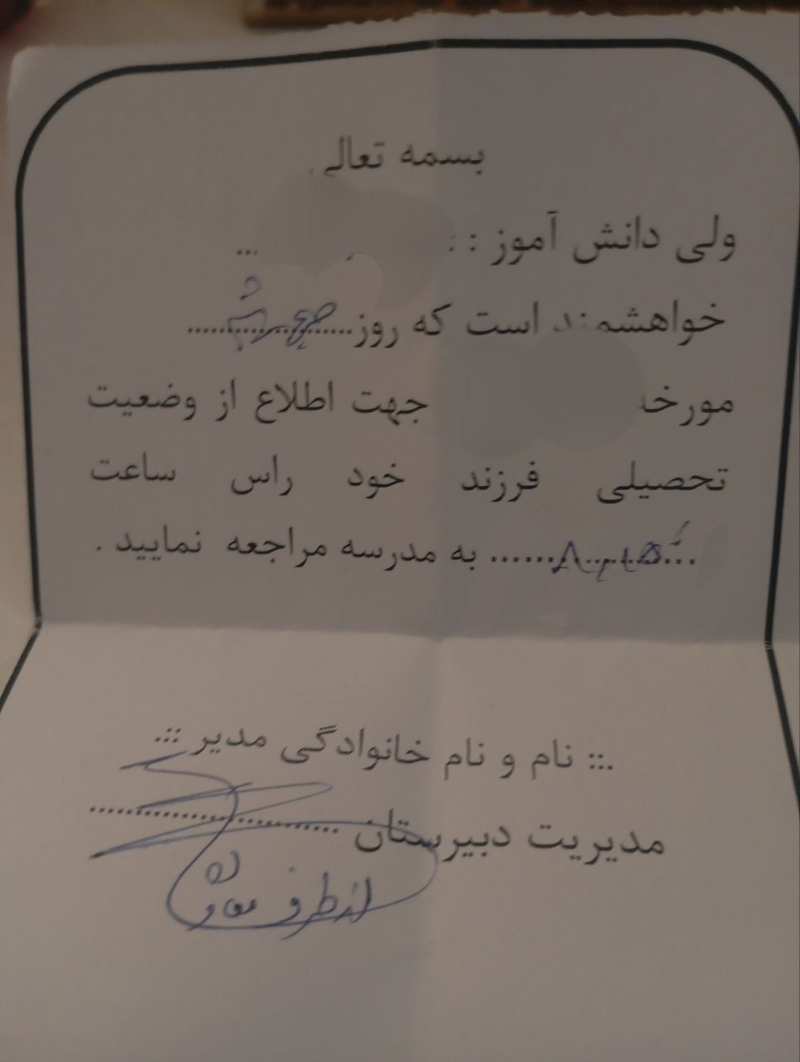 بسمه تعالی
ولی دانش آموز : : ...
خواهشمند است که روز......................
مورخه جهت اطلاع از وضعیت
تحصیلی فرزند خود راس ساعت
............... به مدرسه مراجعه نمایید .
.:: نام و نام خانوادگی مدیر ::.
مدیریت دبیرستان ..............................
از طرف معاون